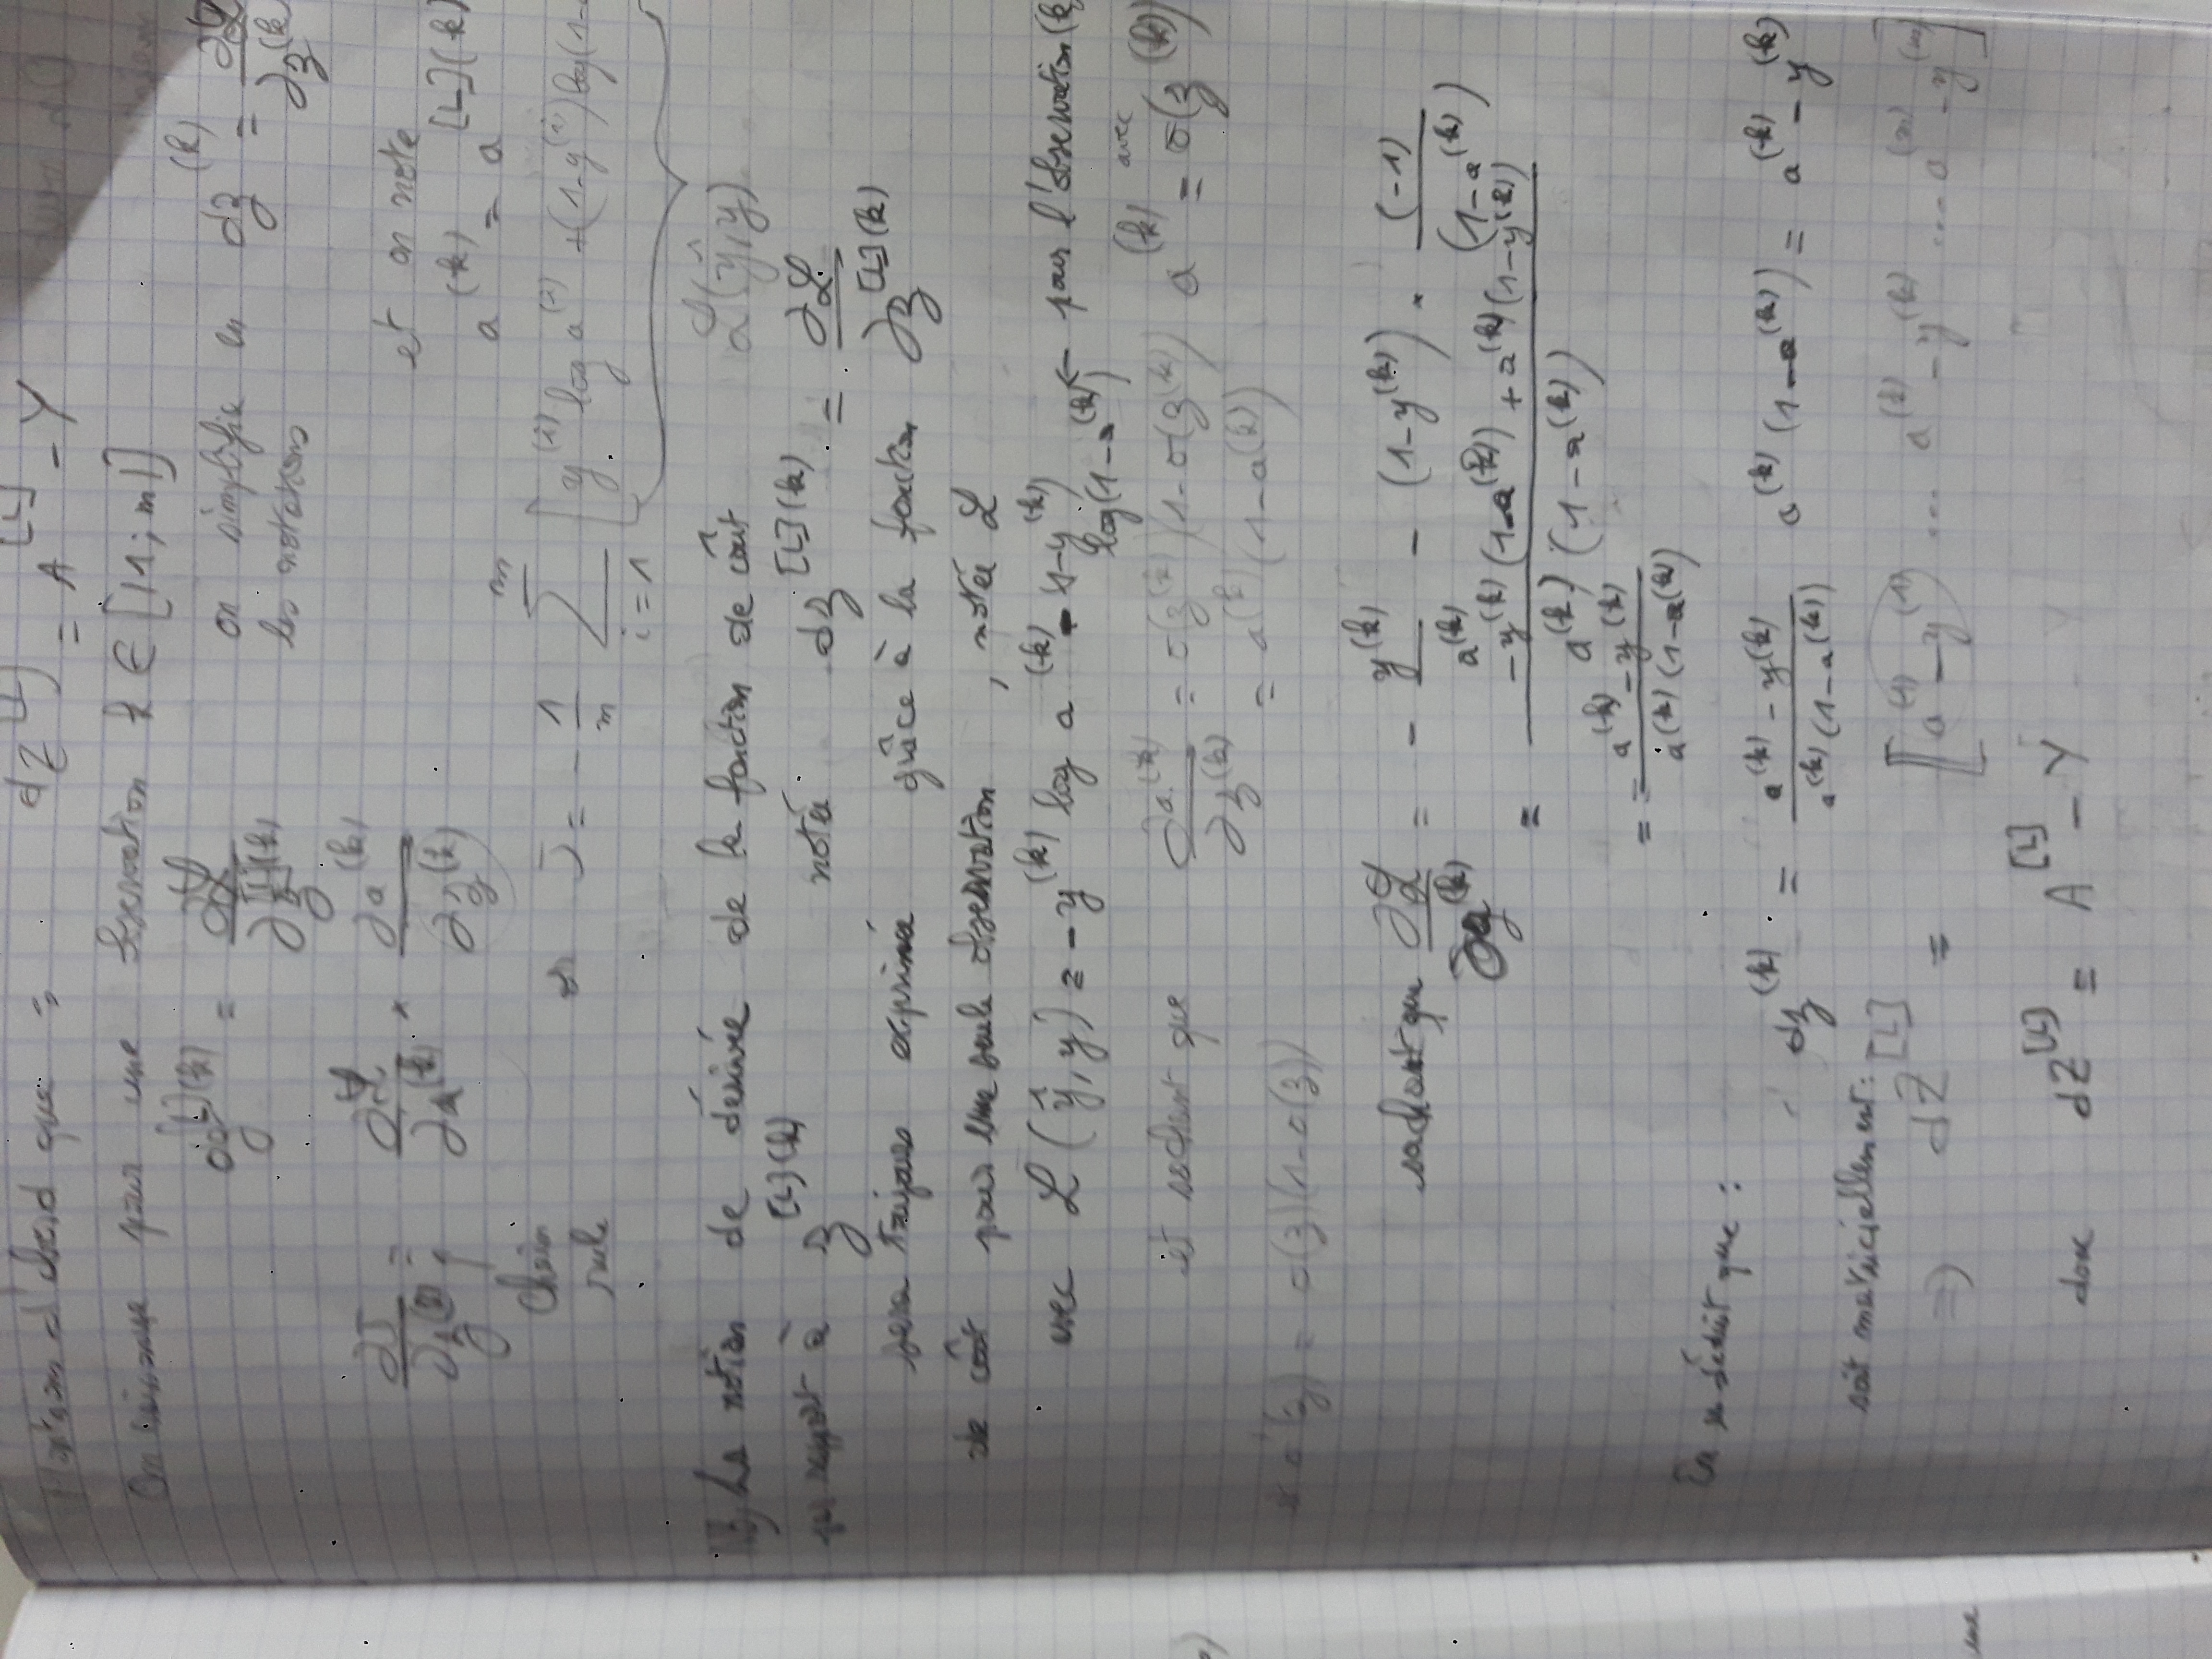 Montrons d'abord que : dZ^[L] = A^[L] - Y
On raisonne pour une observation k ∈ [|1; m|]
dz^[L](k) = ∂ℒ / ∂z^[L](k) on simplifie en dz^(k) = ∂ℒ / ∂z^(k)
les notations
∂J / ∂z^(k) = ∂ℒ / ∂a^(k) × ∂a^(k) / ∂z^(k) et on note
a^(k) = a^[L](k)
Chain
rule
or J = - 1/m ∑_{i=1}^{m} [y^(i) log a^(i) + (1-y^(i)) log(1-
ℒ(ŷ, y)
La notion de dérivée de la fonction de coût
par rapport à z^[L](k) notée dz^[L](k) = ∂ℒ / ∂z^[L](k)
sera toujours exprimée grâce à la fonction
de coût pour une seule observation, notée ℒ
avec ℒ(ŷ, y) = - y^(k) log a^(k) - 1-y^(k)) log(1-a^(k)) ← pour l'observation (k
et sachant que ∂a^(k) / ∂z^(k) = σ(z^(k))(1-σ(z^(k)) avec a^(k) = σ(z^(k))
= a^(k) (1-a^(k))
σ'(z) = σ(z)(1-σ(z))
sachant que ∂ℒ / ∂a^(k) = - y^(k) / a^(k) - (1-y^(k)) · (-1) / (1-a^(k))
= -y^(k) (1-a^(k)) + a^(k) (1-y^(k)) / a^(k) (1-a^(k))
= = a^(k) - y^(k) / a^(k) (1-a^(k))
On en déduit que :
dz^(k) = a^(k) - y^(k) / a^(k) (1-a^(k)) a^(k) (1-a^(k)) = a^(k) - y^(k)
soit matriciellement :
⇒ dZ^[L] = [a^(1) - y^(1) ... a^(k) - y^(k) ... a^(m) - y^(m)]
donc dZ^[L] = A^[L] - Y